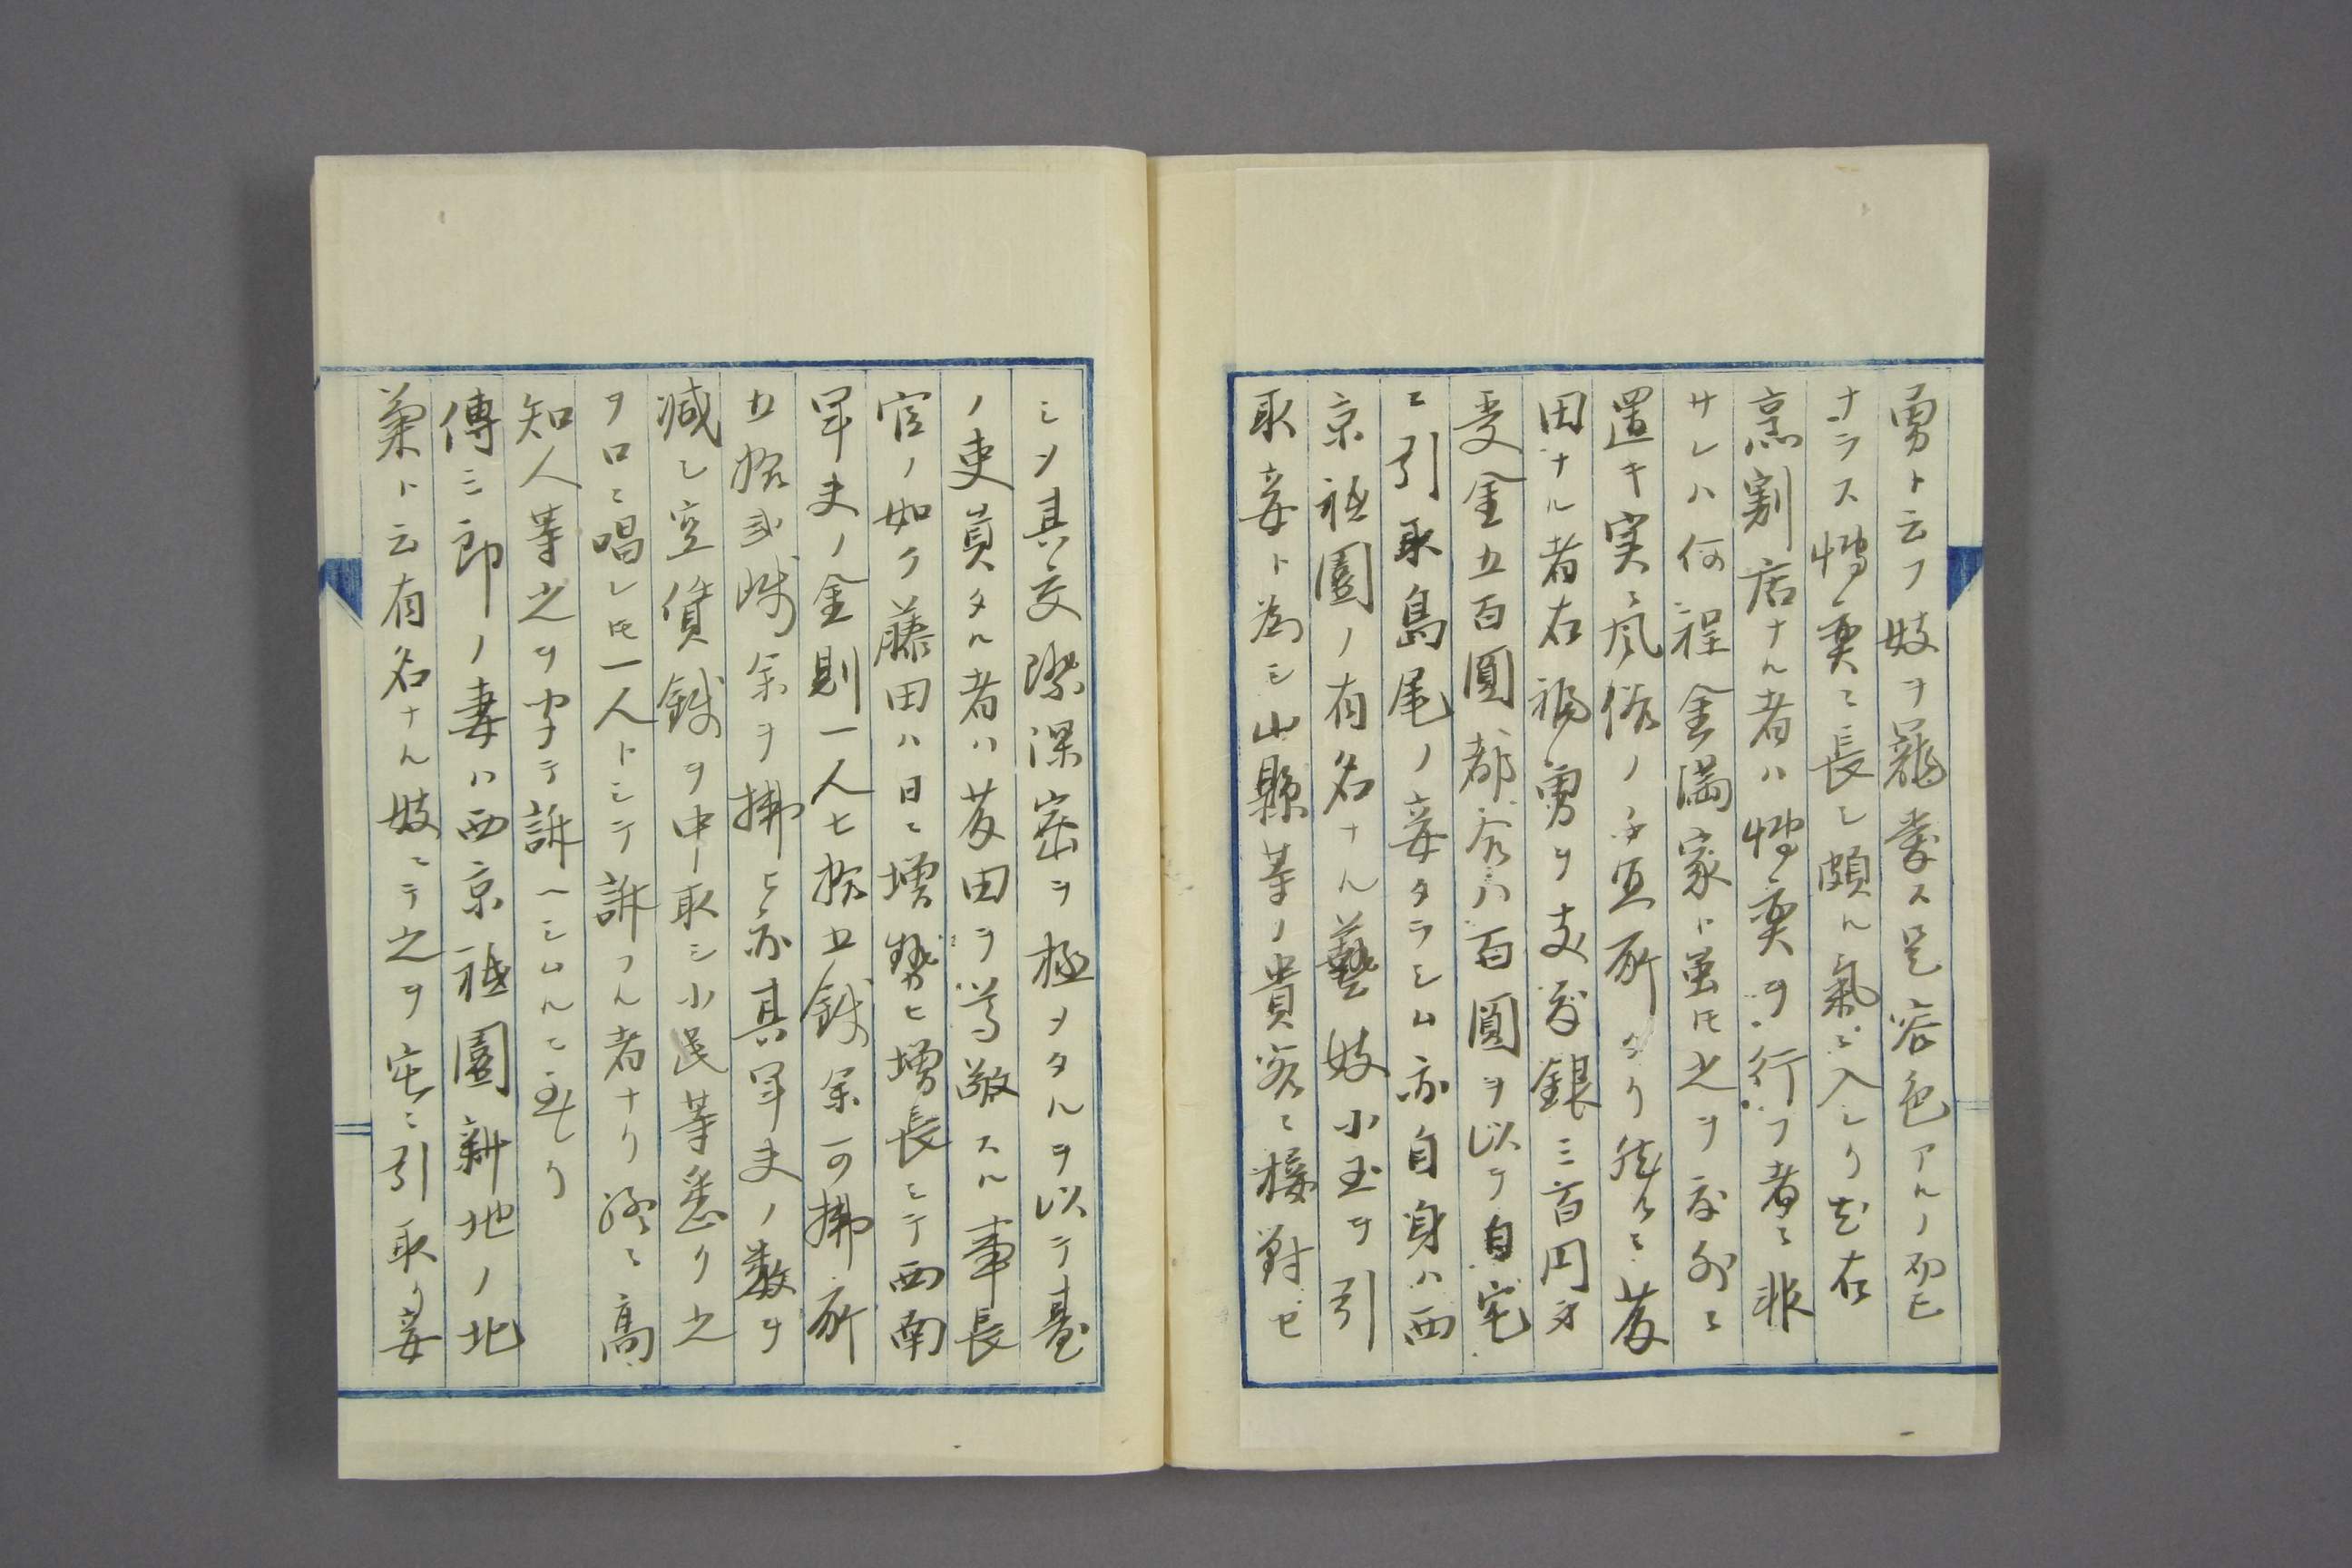 勇ト云フ妓ヲ寵愛ス是容色アルノ而已
ナラス慴奕ニ長シ頗ル氣ニ入レリ尤右
烹割店ナル者ハ慴奕ヲ行フ者ニ非
サレハ何程金満家ト虽𪜈之ヲ度外ニ
置キ実ニ風俗ノ不宜所タリ然ルニ藤
田ナル者右福勇ヲ支度銀三百円身
受金五百圓都合八百圓ヲ以テ自宅
ニ引取島尾ノ妾タラシム亦自身ハ西
京祗園ノ有名ナル藝妓小玉ヲ引
取妾ト為シ山縣等ノ貴客ニ接對セ
シメ其交際深密ヲ極メタルヲ以テ臺
ノ吏員タル者ハ藤田ヲ尊敬スル事長
官ノ如ク藤田ハ日ニ増勢ヒ増長シテ西南
軍夫ノ金則一人七拾五銭余可拂所
五拾弐銭余ヲ拂ヒ亦其軍夫ノ数ヲ
減シ空賃銭ヲ中取シ小民等悉ク之
ヲ口ニ唱レ𪜈一人トシテ訴フル者ナク終ニ高
知人等之ヲ字テ訴ヘシムルニ至レリ
傳三郎ノ妻ハ西京祗園新地ノ北
菊ト云有名ナル妓ニテ之ヲ宅ニ引取リ妾